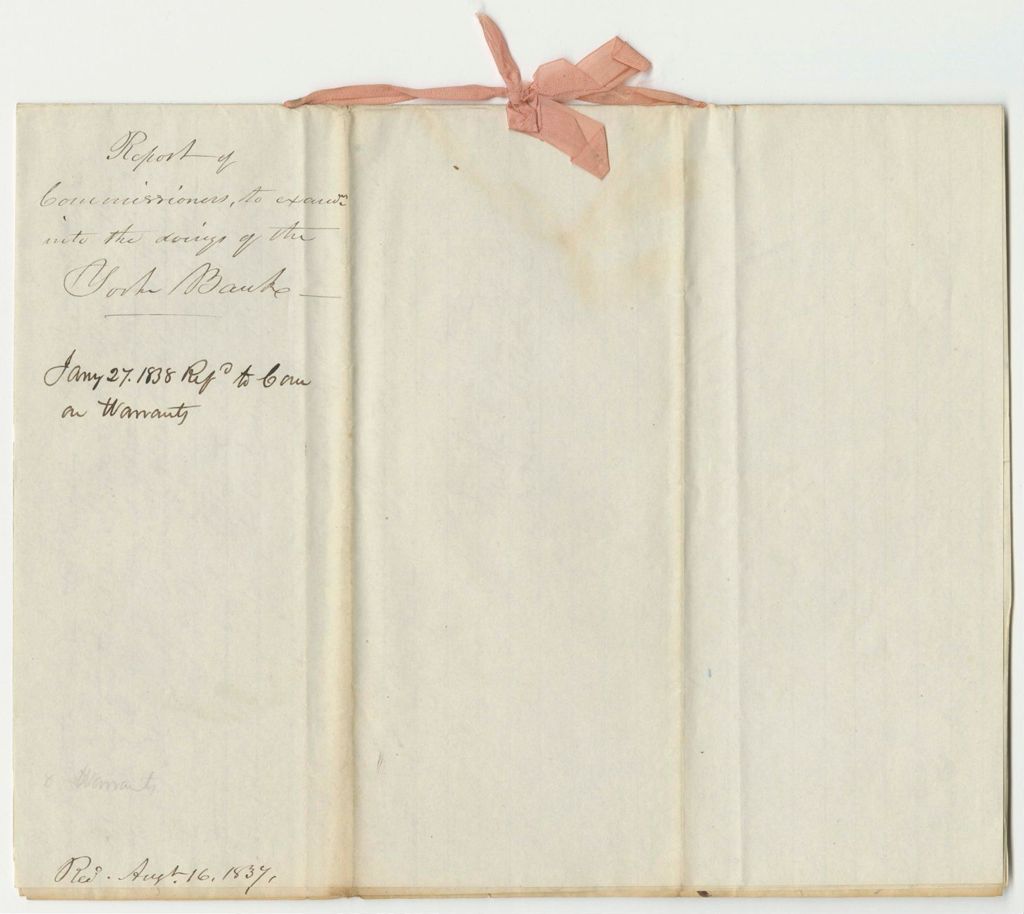 Report of
Commissioners, to exam.n
into the doings of the
York Bank —
Jany 27. 1838 Refd to Com
on Warrants
Warrants
Recd. Augt. 16, 1837.